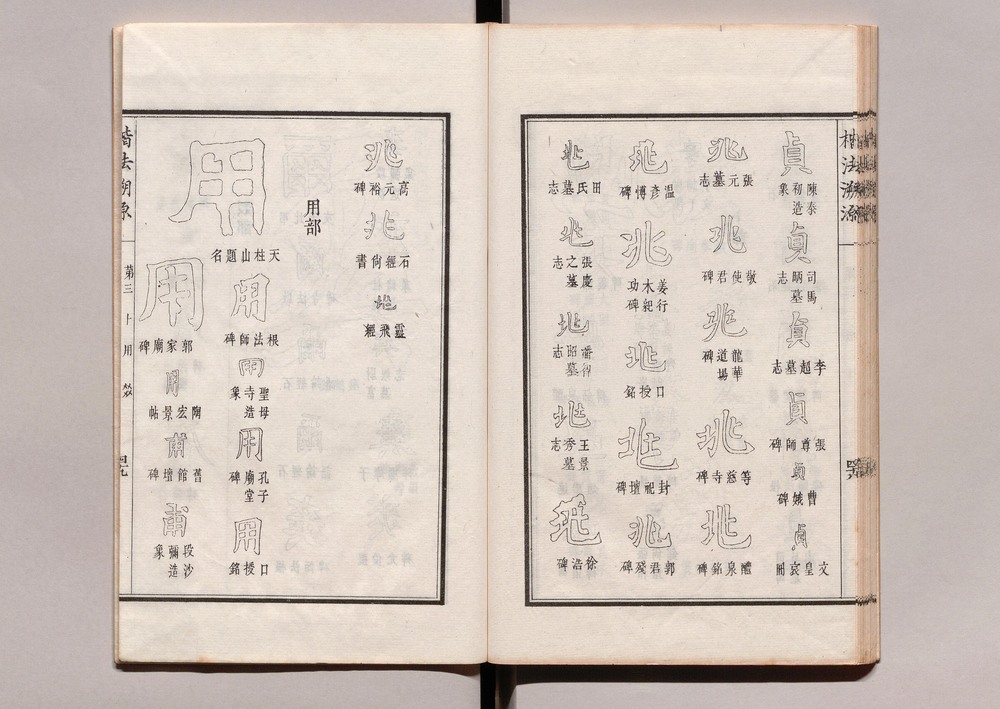 楷法溯源
貞 陳泰初造象
貞 司馬昞墓志
貞 李超墓志
貞 張尊師碑
貞 曹娥碑
貞 文皇哀冊
兆 張元墓志
兆 敬使君碑
兆 龍華道場碑
兆 等慈寺碑
兆 醴泉銘碑
兆 溫彥博碑
兆 姜行木紀功碑
兆 口授銘
兆 封祀壇碑
兆 郭君殘碑
兆 田氏墓志
兆 張慶之墓志
兆 潘得昭墓志
兆 王景秀墓志
兆 徐浩碑
兆 高元裕碑
兆 石經尚書
兆 靈飛經
用部
用 天柱山題名
用 根法師碑
用 聖母寺造象
用 孔子廟堂碑
用 口授銘
用 郭家廟碑
用 陶宏景帖
用 舊館壇碑
用 段沙彌造象
楷法溯原 第三 十 用